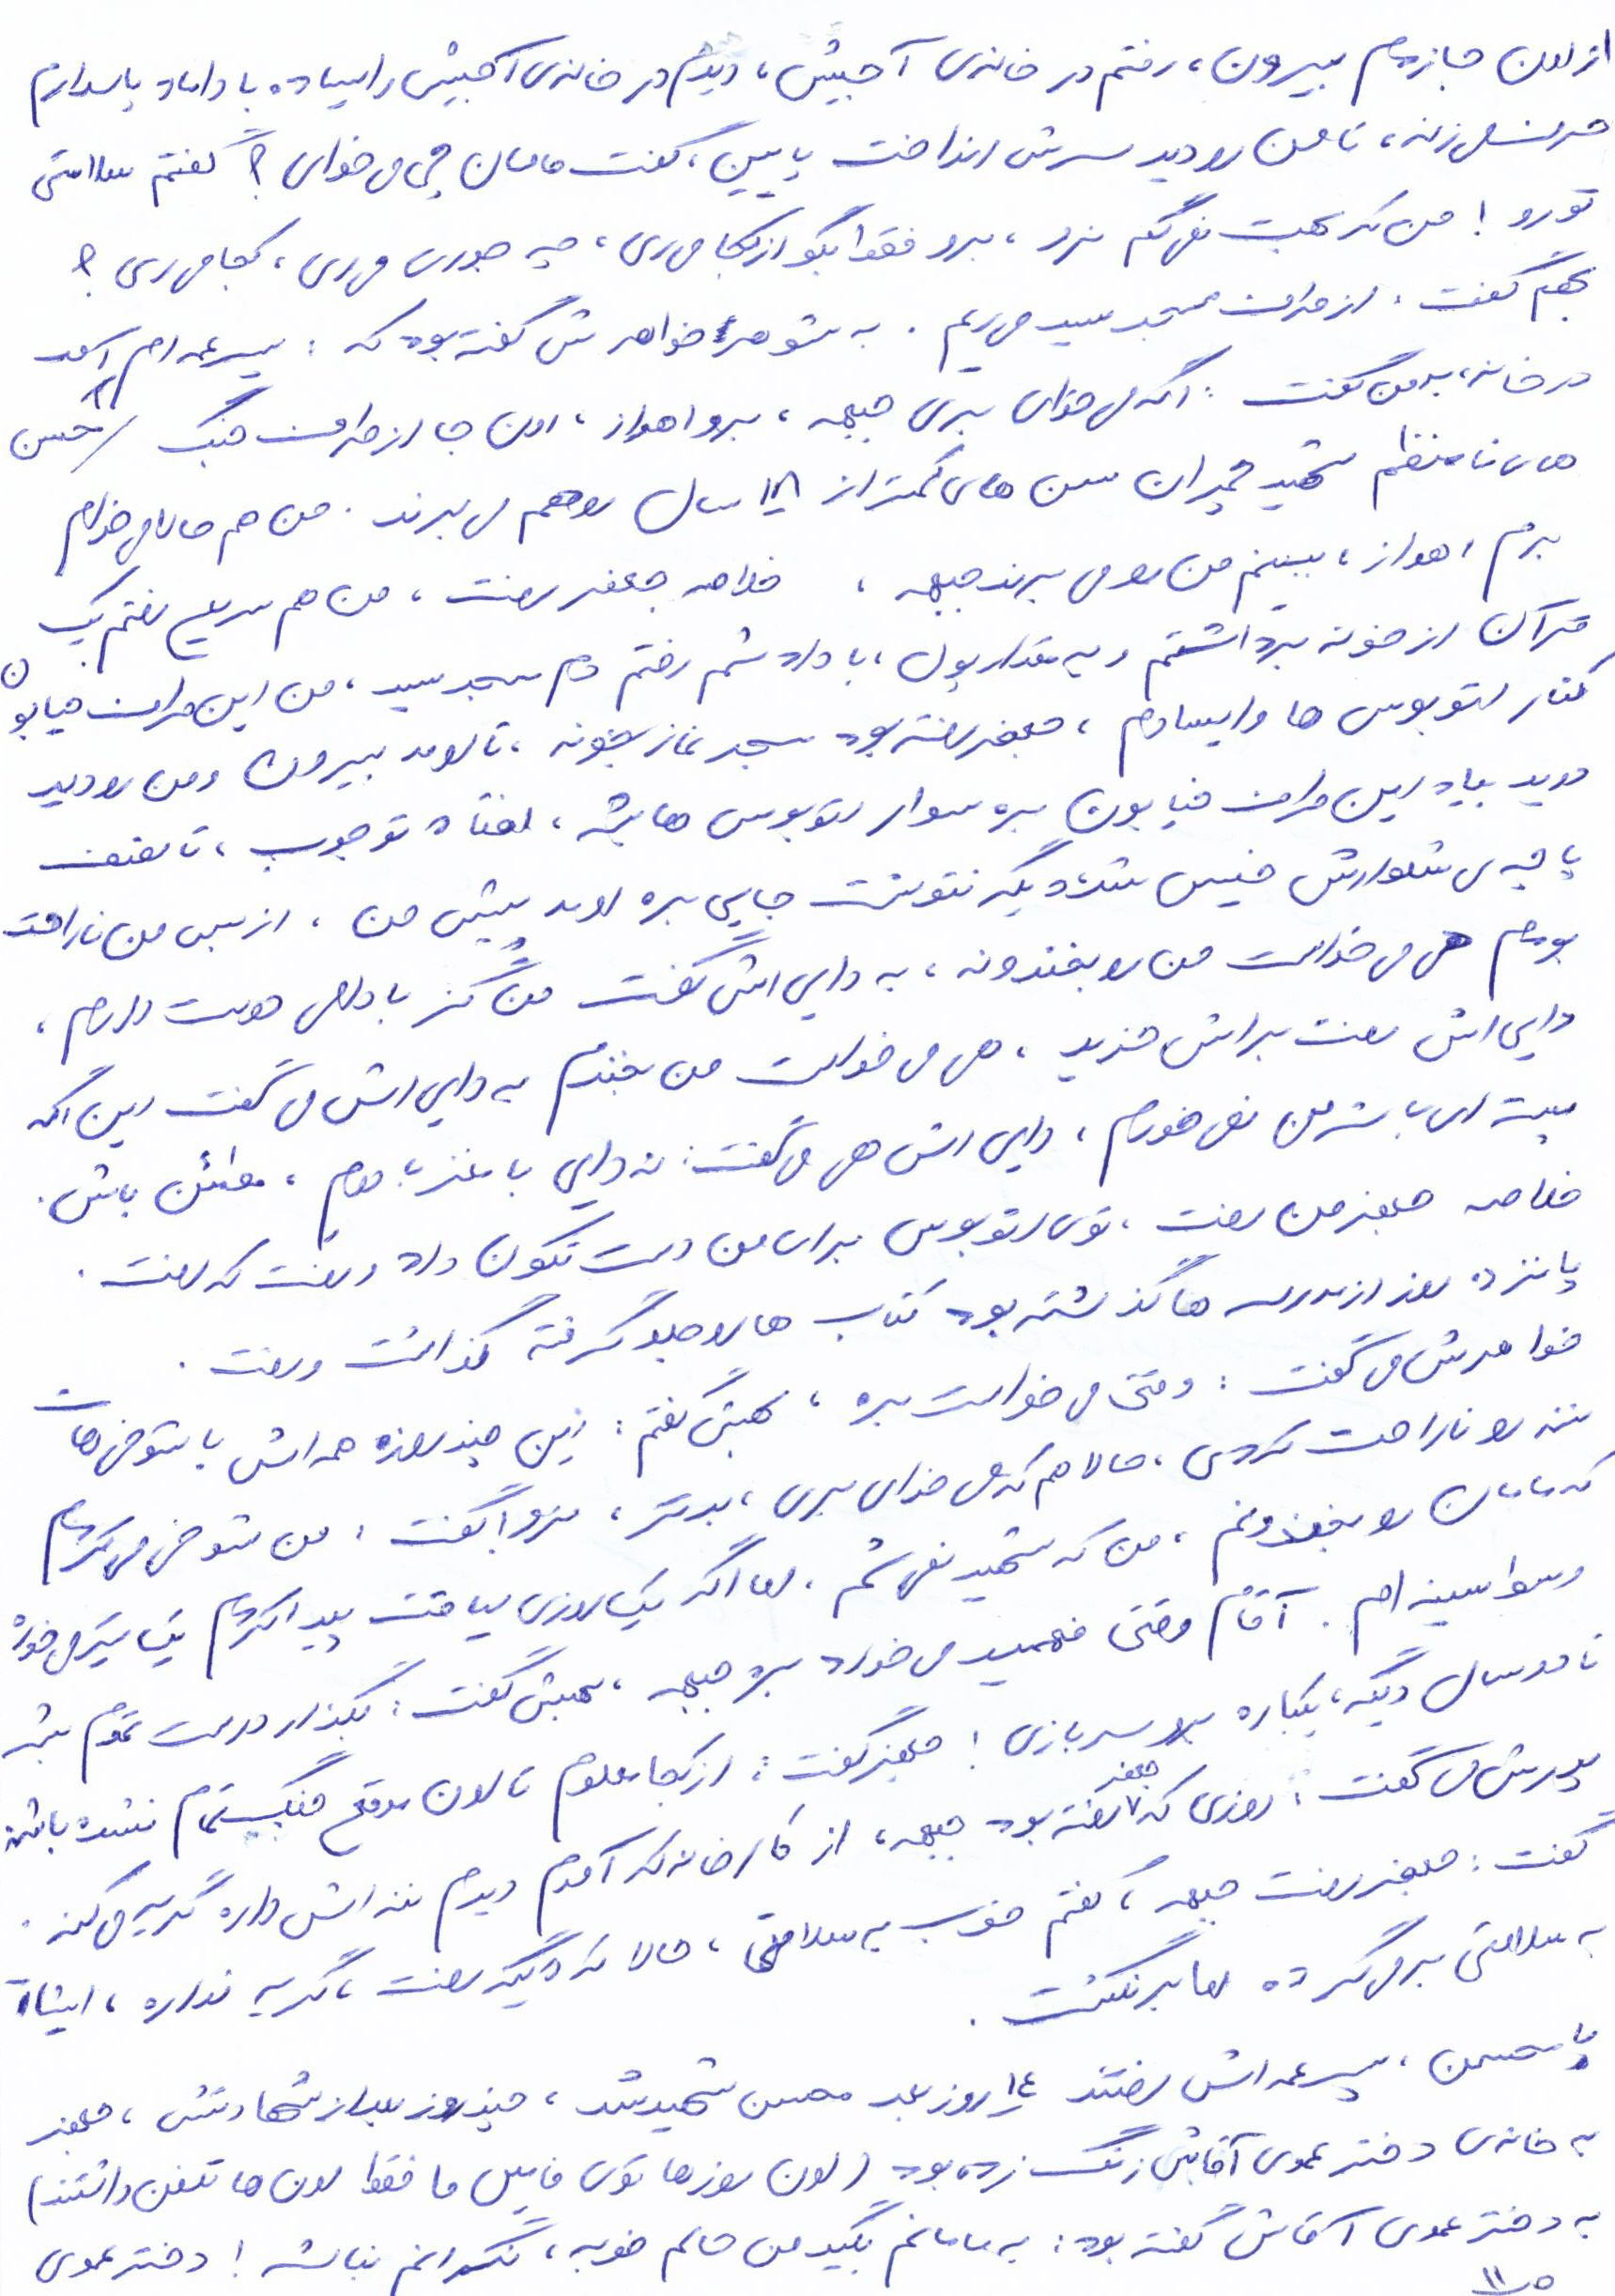 از اون جا زدم بیرون، رفتم در خانه‌ی آجیش، دیدم در خانه‌ی آجیش وایساده با داماد پاسدارم
حرف می‌زنه، تا من رو دید سرش انداخت پایین، گفت مامان چی می‌خوای؟ گفتم سلامتی
تو رو! من که بهت نمی‌گم نرو، برو فقط بگو از کجا می‌ری، چه جوری می‌ری، کجا می‌ری؟
بهم گفت: از طرف مسجد سید می‌ریم. به شوهر خواهرش گفته بود که: پسر عمه‌ام محسن آمد
در خانه، به من گفت: اگه می‌خوای بری جبهه، برو اهواز، اون جا از طرف جنگ
های نامنظم شهید چمران سن های کمتر از ۱۸ سال رو هم می‌برند. من هم حالا می‌خوام
برم اهواز، ببینم من رو می‌برند جبهه، خلاصه جعفر رفت، من هم سریع رفتم یک
قرآن از خونه برداشتم و یه مقدار پول، با دادشم رفتم دم مسجد سید، من این طرف خیابون
کنار اتوبوس ها وایسادم، جعفر رفته بود مسجد نماز بخونه، تا اومد بیرون و من رو دید
دوید بیاد این طرف خیابون بره سوار اتوبوس ها بشه، افتاد تو جوب، تا نصف
پاچه‌ی شلوارش خیس شد، دیگه نتونست جایی بره اومد پیش من، از بس من ناراحت
بودم هی می‌خواست من رو بخندونه، به دایی اش گفت من گز بادامی دوست دارم،
دایی اش رفت براش خرید، هی می‌خواست من بخندم به دایی اش می‌گفت این اگه
پسته‌ای باشه من نمی‌خورم، دایی اش هی می‌گفت: نه دایی با مغز بادوم، مطمئن باش.
خلاصه جعفر من رفت، توی اتوبوس برای من دست تکون داد و رفت که رفت.
پانزده روز از مدرسه ها گذشته بود کتاب ها رو جلد گرفته گذاشت و رفت.
خواهرش می‌گفت: وقتی می‌خواست بره، بهش گفتم: این چند روزه همه‌اش با شوخی هات
ننه رو ناراحت کردی، حالا هم که می‌خوای بری، بدتر، نرو! گفت: من شوخی می‌کردم
که مامان رو بخندونم، من که شهید نمی‌شم، اما اگه یک روزی لیاقت پیدا کردم یک تیر می‌خوره
وسط سینه‌ام. آقام وقتی فهمید می‌خواد بره جبهه، بهش گفت: بگذار درست تموم بشه
تا دو سال دیگه، یکباره برو سربازی! جعفر گفت: از کجا معلوم تا اون موقع جنگ تمام نشده باشه
پدرش می‌گفت: روزی که جعفر رفته بود جبهه، از کارخانه که آمدم دیدم ننه‌اش داره گریه می‌کنه.
گفت: جعفر رفت جبهه، گفتم خوب به سلامتی، حالا که دیگه رفت، گریه نداره، ایشاا...
به سلامتی برمی‌گرده اما برنگشت.
با محسن، پسر عمه‌اش رفتند ۱۴ روز بعد محسن شهید شد، چند روز بعد از شهادتش، جعفر
به خانه‌ی دختر عموی آقاش زنگ زده بود (اون روزها توی فامیل ما فقط اون ها تلفن داشتند)
به دختر عموی آقاش گفته بود: به مامانم بگید من حالم خوبه، نگرانم نباشه! دختر عموی
ص ۱۱